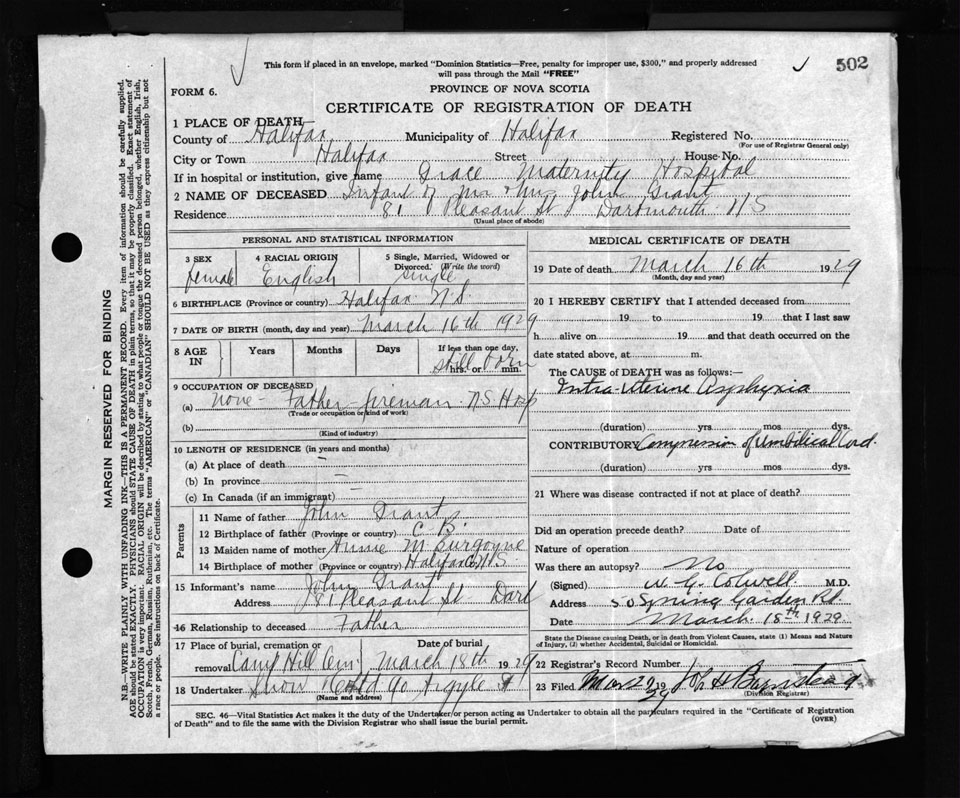 This form if placed in an envelope, marked "Dominion Statistics—Free, penalty for improper use, $300," and properly addressed
will pass through the Mail "FREE"
502
FORM 6.
PROVINCE OF NOVA SCOTIA
CERTIFICATE OF REGISTRATION OF DEATH
1 PLACE OF DEATH
County of Halifax Municipality of Halifax Registered No.
(For use of Registrar General only)
City or Town Halifax Street House No.
If in hospital or institution, give name Grace Maternity Hospital
2 NAME OF DECEASED Infant of Mr & Mrs John Grant
Residence 81 Pleasant St Dartmouth N S
(Usual place of abode)
PERSONAL AND STATISTICAL INFORMATION
3 SEX
female
4 RACIAL ORIGIN
English
5 Single, Married, Widowed or
Divorced. (Write the word)
single
6 BIRTHPLACE (Province or country) Halifax N.S.
7 DATE OF BIRTH (month, day and year) March 16th 1929
8 AGE IN
Years Months Days If less than one day,
still born
hrs. or min.
9 OCCUPATION OF DECEASED
(a) none - Father - fireman N S Hosp
(Trade or occupation or kind of work)
(b)
(Kind of industry)
10 LENGTH OF RESIDENCE (in years and months)
(a) At place of death
(b) In province
(c) In Canada (if an immigrant)
Parents
11 Name of father John Grant
12 Birthplace of father (Province or country) C B.
13 Maiden name of mother Annie M Burgoyne
14 Birthplace of mother (Province or country) Halifax Co N S
15 Informant's name John Grant
Address 81 Pleasant St Dart
16 Relationship to deceased Father
17 Place of burial, cremation or removal Camp Hill Cem Date of burial March 18th 1929
18 Undertaker Snow & Co Ltd 90 Argyle St
(Name and address)
MEDICAL CERTIFICATE OF DEATH
19 Date of death March 16th 1929
(Month, day and year)
20 I HEREBY CERTIFY that I attended deceased from
19 to 19 that I last saw
h alive on 19 and that death occurred on the
date stated above, at m.
The CAUSE of DEATH was as follows:—
Intra-Uterine Asphyxia
(duration) yrs mos dys.
CONTRIBUTORY Compression of Umbilical Cord.
(duration) yrs mos dys.
21 Where was disease contracted if not at place of death?
Did an operation precede death? Date of
Nature of operation
Was there an autopsy? No
(Signed) W. G. Colwell M.D.
Address 50 Spring Garden Rd.
Date March 18th 1929.
State the Disease causing Death, or in death from Violent Causes, state (1) Means and Nature
of Injury, (2) whether Accidental, Suicidal or Homicidal.
22 Registrar's Record Number
23 Filed Mar 19 29
(Division Registrar)
SEC. 46—Vital Statistics Act makes it the duty of the Undertaker/or person acting as Undertaker to obtain all the particulars required in the "Certificate of Registration
of Death" and to file the same with the Division Registrar who shall issue the burial permit.
(OVER)
MARGIN RESERVED FOR BINDING
N.B.—WRITE PLAINLY WITH UNFADING INK—THIS IS A PERMANENT RECORD. Every item of information should be carefully supplied.
AGE should be stated EXACTLY. PHYSICIANS should STATE CAUSE OF DEATH in plain terms, so that it may be properly classified. Exact statement of
OCCUPATION is very important. RACIAL ORIGIN will be described by stating to what people or tongue the deceased person belonged, whether English, Irish,
Scotch, French, German, Russian, Ruthenian, etc. The terms "AMERICAN" or "CANADIAN" SHOULD NOT BE USED as they express citizenship but not
a race or people. See instructions on back of Certificate.